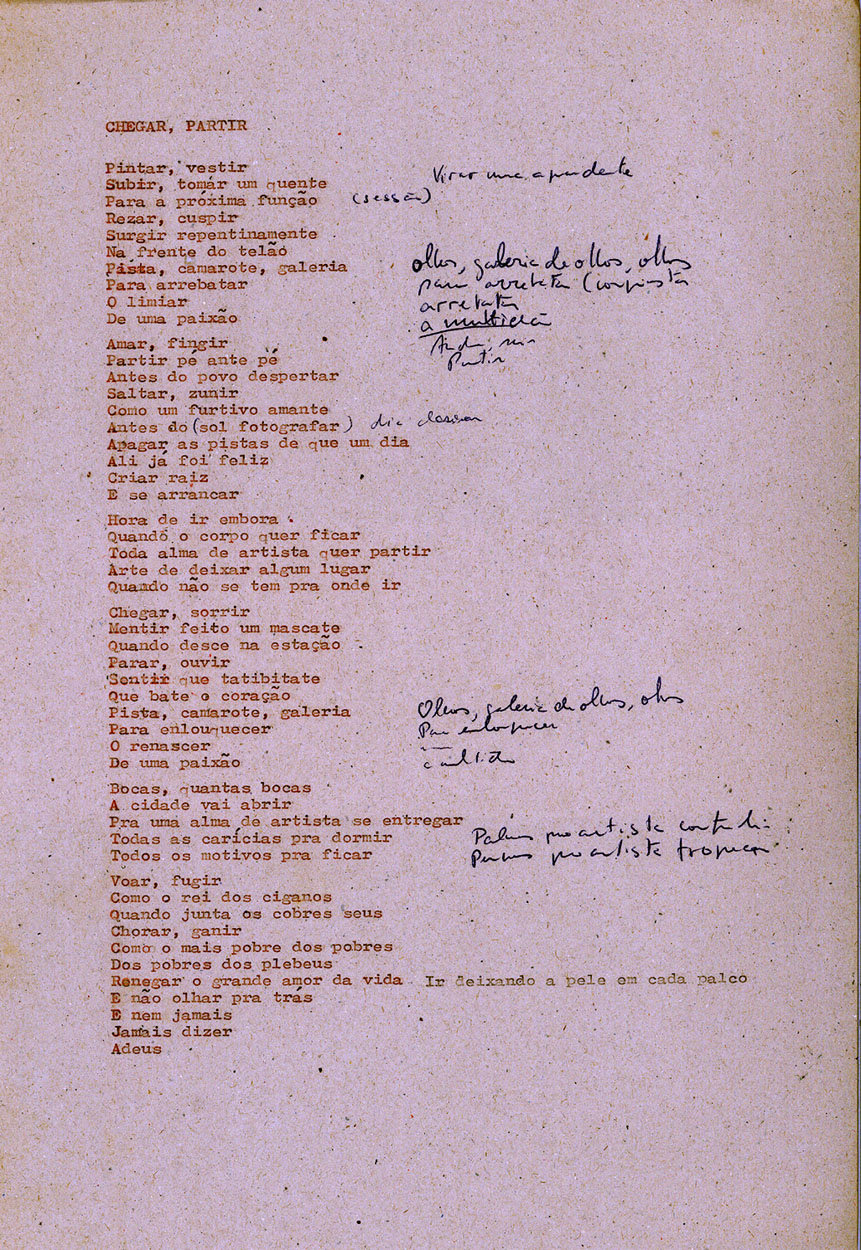 CHEGAR, PARTIR
Pintar, vestir
Virar uma aguardente
Subir, tomár um quente
Para a próxima função (sessão)
Rezar, cuspir
Surgir repentinamente
Na frente do telão
Pista, camarote, galeria
olhos, galeria de olhos, olhos
Para arrebatar
para arrebatar (conquista
O limiar
arrebatar
De uma paixão
a multidão
Amar, fingir
Partir pé ante pé
Partir
Antes do povo despertar
Saltar, zunir
Como um furtivo amante
Antes do (sol fotografar) dia clarear
Apagar as pistas de que um dia
Ali já foi feliz
Criar raiz
E se arrancar
Hora de ir embora
Quando o corpo quer ficar
Toda alma de artista quer partir
Arte de deixar algum lugar
Quando não se tem pra onde ir
Chegar, sorrir
Mentir feito um mascate
Quando desce na estação
Parar, ouvir
Sentir que tatibitate
Que bate o coração
Pista, camarote, galeria
Olhos, galeria de olhos, olhos
Para enlouquecer
Para enlouquecer
O renascer
De uma paixão
a multidão
Bocas, quantas bocas
A cidade vai abrir
Pra uma alma de artista se entregar
Todas as carícias pra dormir
Palmas pro artista
Todos os motivos pra ficar
Pernas pro artista tropeçar
Voar, fugir
Como o rei dos ciganos
Quando junta os cobres seus
Chorar, ganir
Como o mais pobre dos pobres
Dos pobres dos plebeus
Renegar o grande amor da vida Ir deixando a pele em cada palco
E não olhar pra trás
E nem jamais
Jamais dizer
Adeus